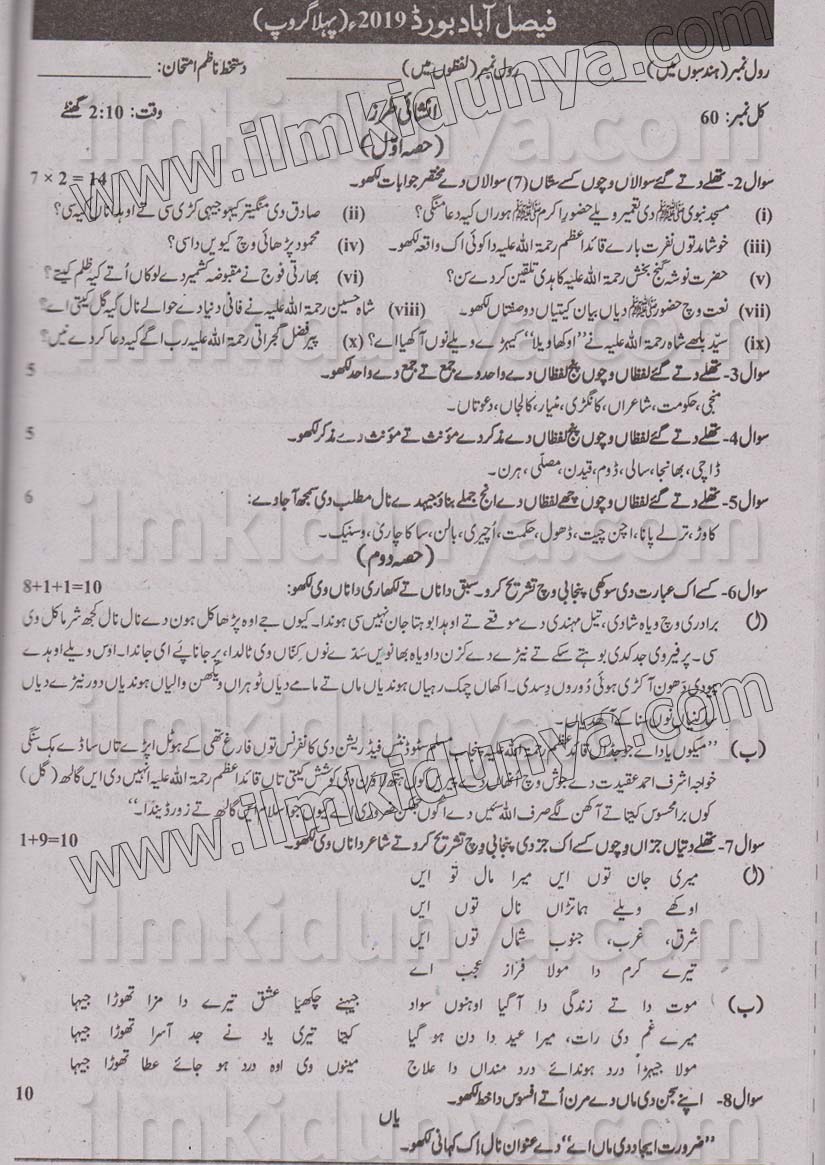 فیصل آباد بورڈ 2019ء (پہلا گروپ)
رول نمبر (ہندسوں میں) ________ رول نمبر (لفظوں میں) ________ دستخط ناظم امتحان: ________
کل نمبر: 60 انشائی طرز وقت: 2:10 گھنٹے
(حصہ اوّل)
سوال 2- تھلے دتے گئے سوالاں وچوں کسے ستاں (7) سوالاں دے مختصر جوابات لکھو۔ 7 × 2 = 14
(i) مسجد نبوی ﷺ دی تعمیر ویلے حضور اکرم ﷺ ہوراں کیہ دعا منگی؟ (ii) صادق دی منگیتر کیہو جیہی کڑی سی تے اوہدا ناں کیہ سی؟
(iii) خوشامد توں نفرت بارے قائداعظم رحمۃ اللہ علیہ دا کوئی اک واقعہ لکھو۔ (iv) محمود پڑھائی وچ کیویں دا سی؟
(v) حضرت نوشہ گنج بخش رحمۃ اللہ علیہ کاہدی تلقین کردے سن؟ (vi) بھارتی فوج نے مقبوضہ کشمیر دے لوکاں اُتے کیہ ظلم کیتے؟
(vii) نعت وچ حضور ﷺ دیاں بیان کیتیاں دو صفتاں لکھو۔ (viii) شاہ حسین رحمۃ اللہ علیہ نے فانی دنیا دے حوالے نال کیہ گل کیتی اے؟
(ix) سیّد بلھے شاہ رحمۃ اللہ علیہ نے "اوکھا ویلا" کیہڑے ویلے نوں آکھیا اے؟ (x) پیر فضل گجراتی رحمۃ اللہ علیہ رب اگے کیہ دعا کردے نیں؟
سوال 3- تھلے دتے گئے لفظاں وچوں پنج لفظاں دے واحد دے جمع تے جمع دے واحد لکھو۔ 5
منجی، حکومت، شاعراں، کانگڑی، منیار، کالجاں، دعوتاں۔
سوال 4- تھلے دتے گئے لفظاں وچوں پنج لفظاں دے مذکر دے مؤنث تے مؤنث دے مذکر لکھو۔ 5
ڈاچی، بھانجا، سالی، ڈوم، قیدن، مصلّی، ہرن۔
سوال 5- تھلے دتے گئے لفظاں وچوں چھے لفظاں دے انج جملے بناؤ جیہدے نال مطلب دی سمجھ آ جاوے: 6
کاوڑ، ترلے پانا، اچن چیت، ڈھول، حکمت، اُچیری، بالن، ساکاچاری، وسنیک۔
(حصہ دوم)
سوال 6- کسے اک عبارت دی سوکھی پنجابی وچ تشریح کرو۔ سبق دا ناں تے لکھاری دا ناں وی لکھو: 8+1+1=10
(ل) برادری وچ ویاہ شادی، تیل مہندی دے موقعے تے اوہدا بوہتا جان نہیں سی ہوندا۔ کیوں جے اوہ پڑھاکل ہون دے نال نال کجھ شرماکل وی
سی۔ پر فیر وی جد کدی بوہتے سکے تے نیڑے دے کزن دا ویاہ بھانویں سَدّے نوں کِنّاں وی ٹالدا، پر جانا پائے ای جاندا۔ اوس ویلے اوہدے
بودی دھون آکڑی ہوئی دُوروں دِسدی۔ اکھاں چمک رہیاں ہوندیاں ماں تے مامے دیاں ٹوہراں ویکھن والیاں ہوندیاں دور نیڑے دیاں
(ب) "میکوں یاد اے جو جڈاں قائداعظم رحمۃ اللہ علیہ پنجاب مسلم سٹوڈنٹس فیڈریشن دی کانفرنس توں فارغ تھی کے ہوٹل اپڑے تاں ساڈے ہک سنگی
خواجہ اشرف احمد عقیدت دے جوش وچ انہاں دے پیریں کوں ہتھ لاون دی کوشش کیتی تاں قائداعظم رحمۃ اللہ علیہ انہیں دی ایں گالھ (گل)
کوں برا محسوس کیتا تے آکھن لگے صرف اللہ سئیں دے اگوں جھکن ضروری اے کیوں جو اسلام ایں گالھ تے زور ڈیندا۔"
سوال 7- تھلے دتیاں جزاں وچوں کسے اک جز دی پنجابی وچ تشریح کرو تے شاعر دا ناں وی لکھو۔ 1+9=10
(ل) میری جان توں ایں میرا مال تو ایں
اوکھے ویلے ہماتڑاں نال توں ایں
شرق، غرب، جنوب شمال توں ایں
تیرے کرم دا مولا فراز عجب اے
(ب) موت دا تے زندگی دا آ گیا اوہنوں سواد جیہنے چکھیا عشق تیرے دا مزا تھوڑا جیہا
میرے غم دی رات، میرا عید دا دن ہو گیا کیتا تیری یاد نے جد آسرا تھوڑا جیہا
مولا جیہڑا درد ہوندائے درد منداں دا علاج مینوں وی اوہ درد ہو جائے عطا تھوڑا جیہا
سوال 8- اپنے سجن دی ماں دے مرن اُتے افسوس دا خط لکھو۔ 10
یاں
"ضرورت ایجاد دی ماں اے" دے عنوان نال اِک کہانی لکھو۔
www.ilmkidunya.com
www.ilmkidunya.com
ilmkidunya.com
ilmkidunya.com
ilmkidunya.com
ilmkidunya.com
ilmkidunya.com